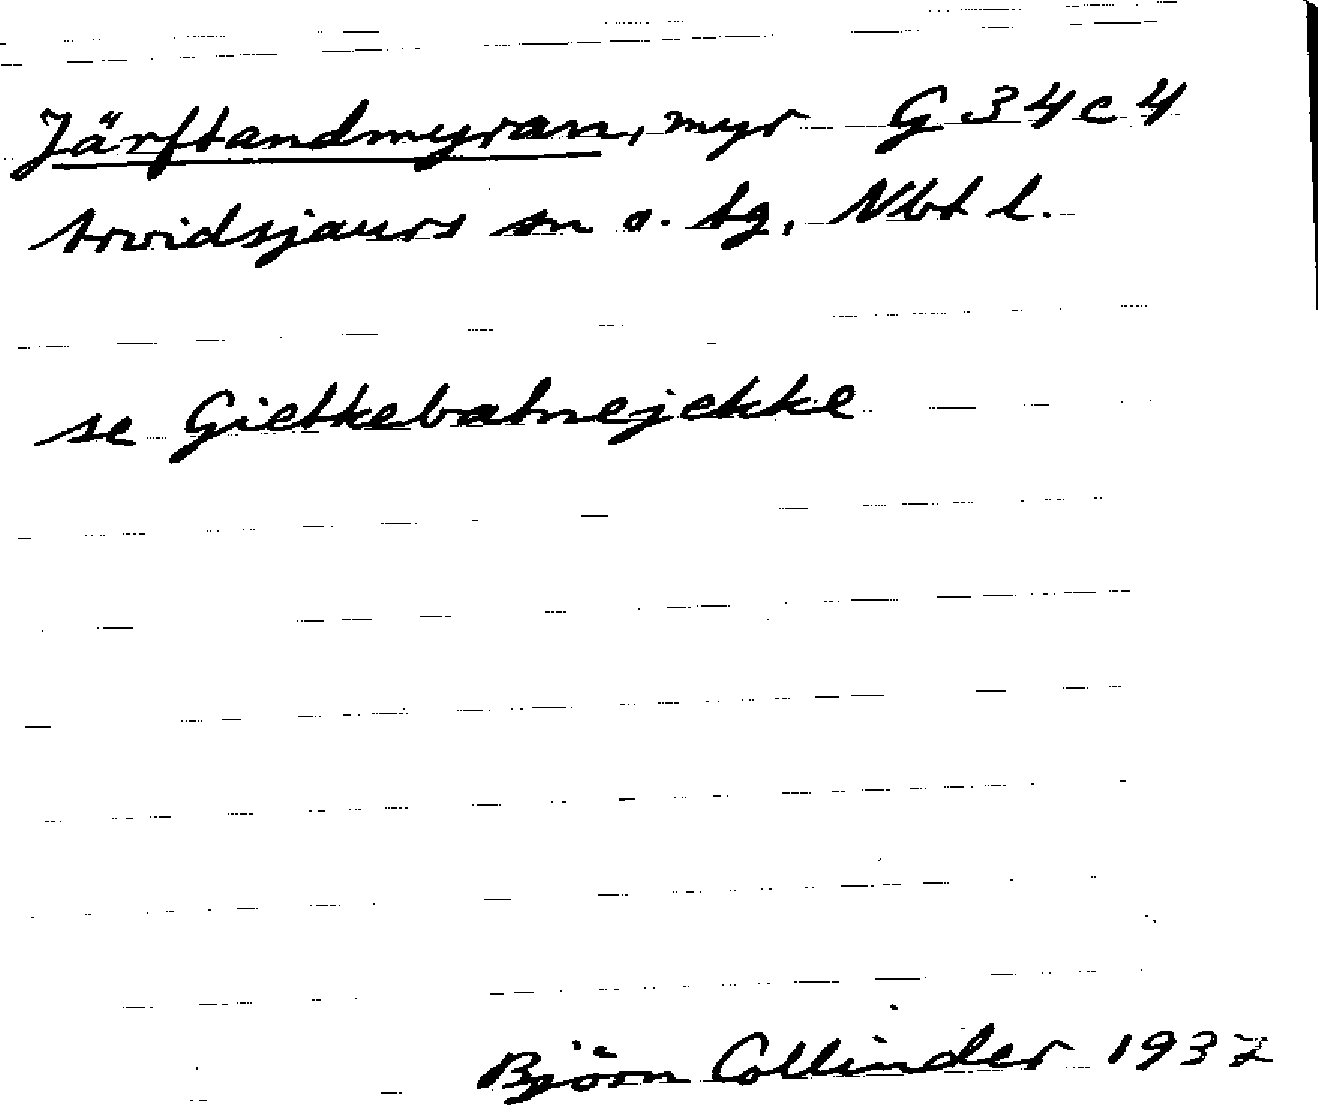 Järftandmyran, myr G 34 c 4
Arvidsjaurs sn o. tg, Nbt l.
se Gietkebatnejekke
Björn Collinder 1932